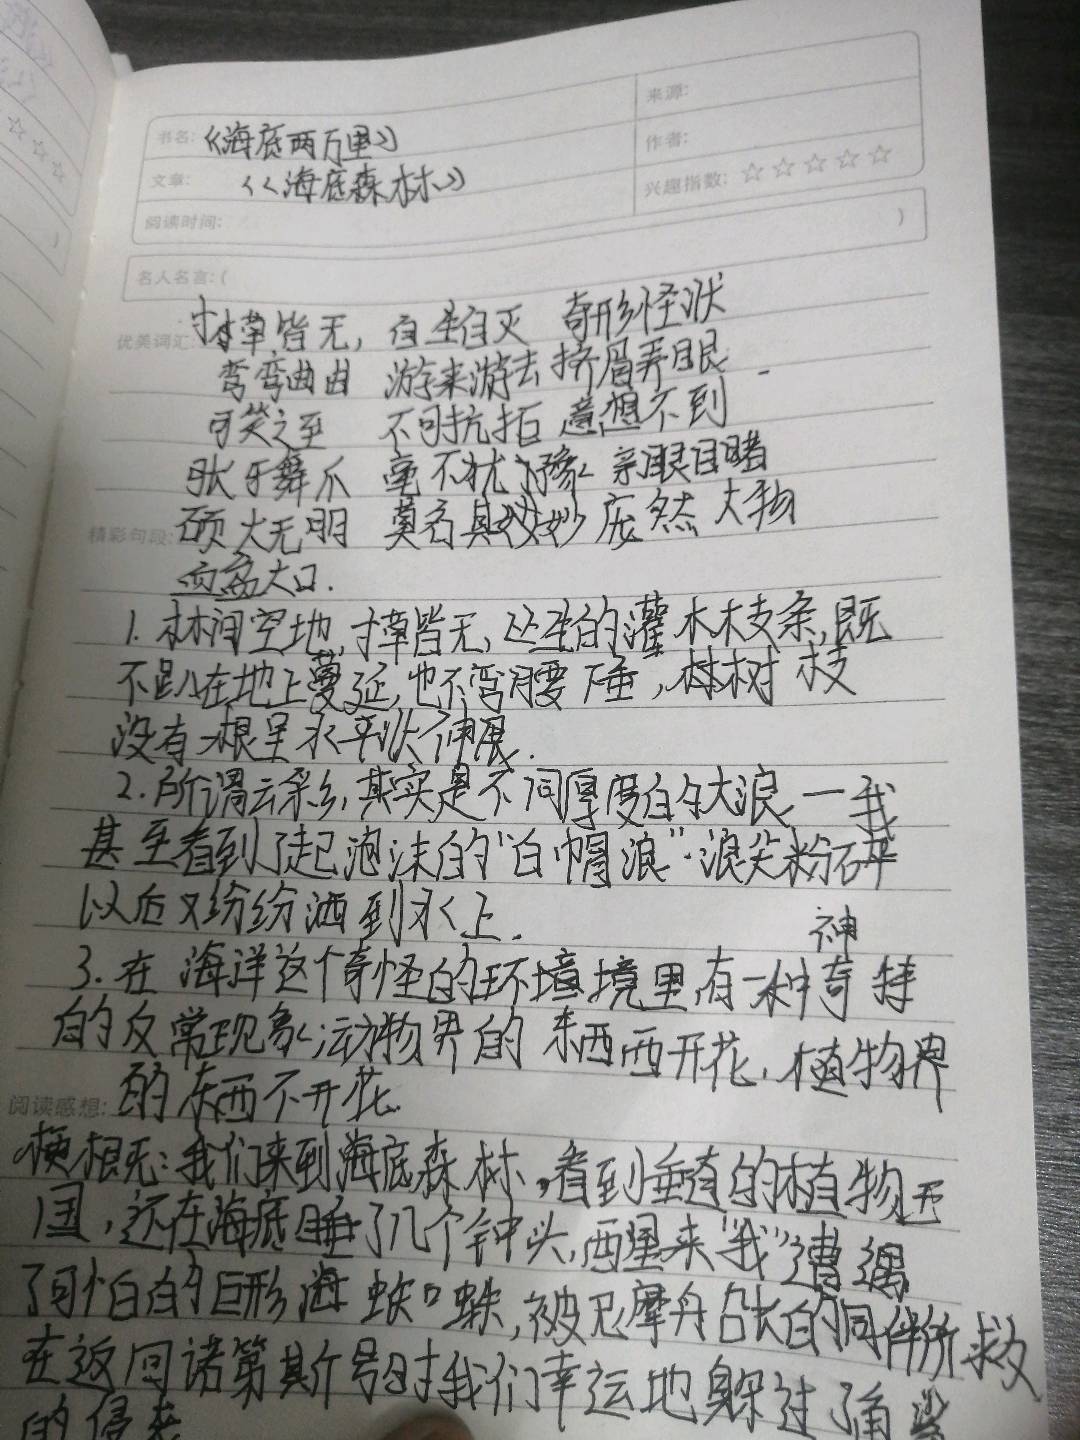 书名：《海底两万里》
来源：
文章：《海底森林》
作者：
阅读时间：
兴趣指数：☆☆☆☆☆
）
名人名言：（
优美词汇：
寸草皆无，自生自灭 奇形怪状
弯弯曲曲 游来游去 挤眉弄眼
可笑之至 不可抗拒 意想不到
张牙舞爪 毫不犹豫 亲眼目睹
精彩句段：
硕大无朋 莫名其妙 庞然大物
血盆大口.
1. 林间空地，寸草皆无，丛生的灌木枝条，既
不趴在地上蔓延，也不弯腰下垂，树枝
没有一根呈水平状伸展.
2. 所谓云彩，其实是不同厚度的大浪，一我
甚至看到了起泡沫的“白帽浪”.浪尖粉碎
以后又纷纷洒到水上.
神
3. 在海洋这个奇怪的环境里，有一种奇特
的反常现象：动物界的东西而开花，植物界
的东西不开花.
阅读感想：
梗概：我们来到海底森林，看到垂直的植物王
国，还在海底睡了几个钟头，醒来“我”遭遇
了可怕的巨形海蜘蛛，被尼摩舟长的同伴所救
在返回诺第斯号时我们幸运地躲过了角鲨
的侵袭